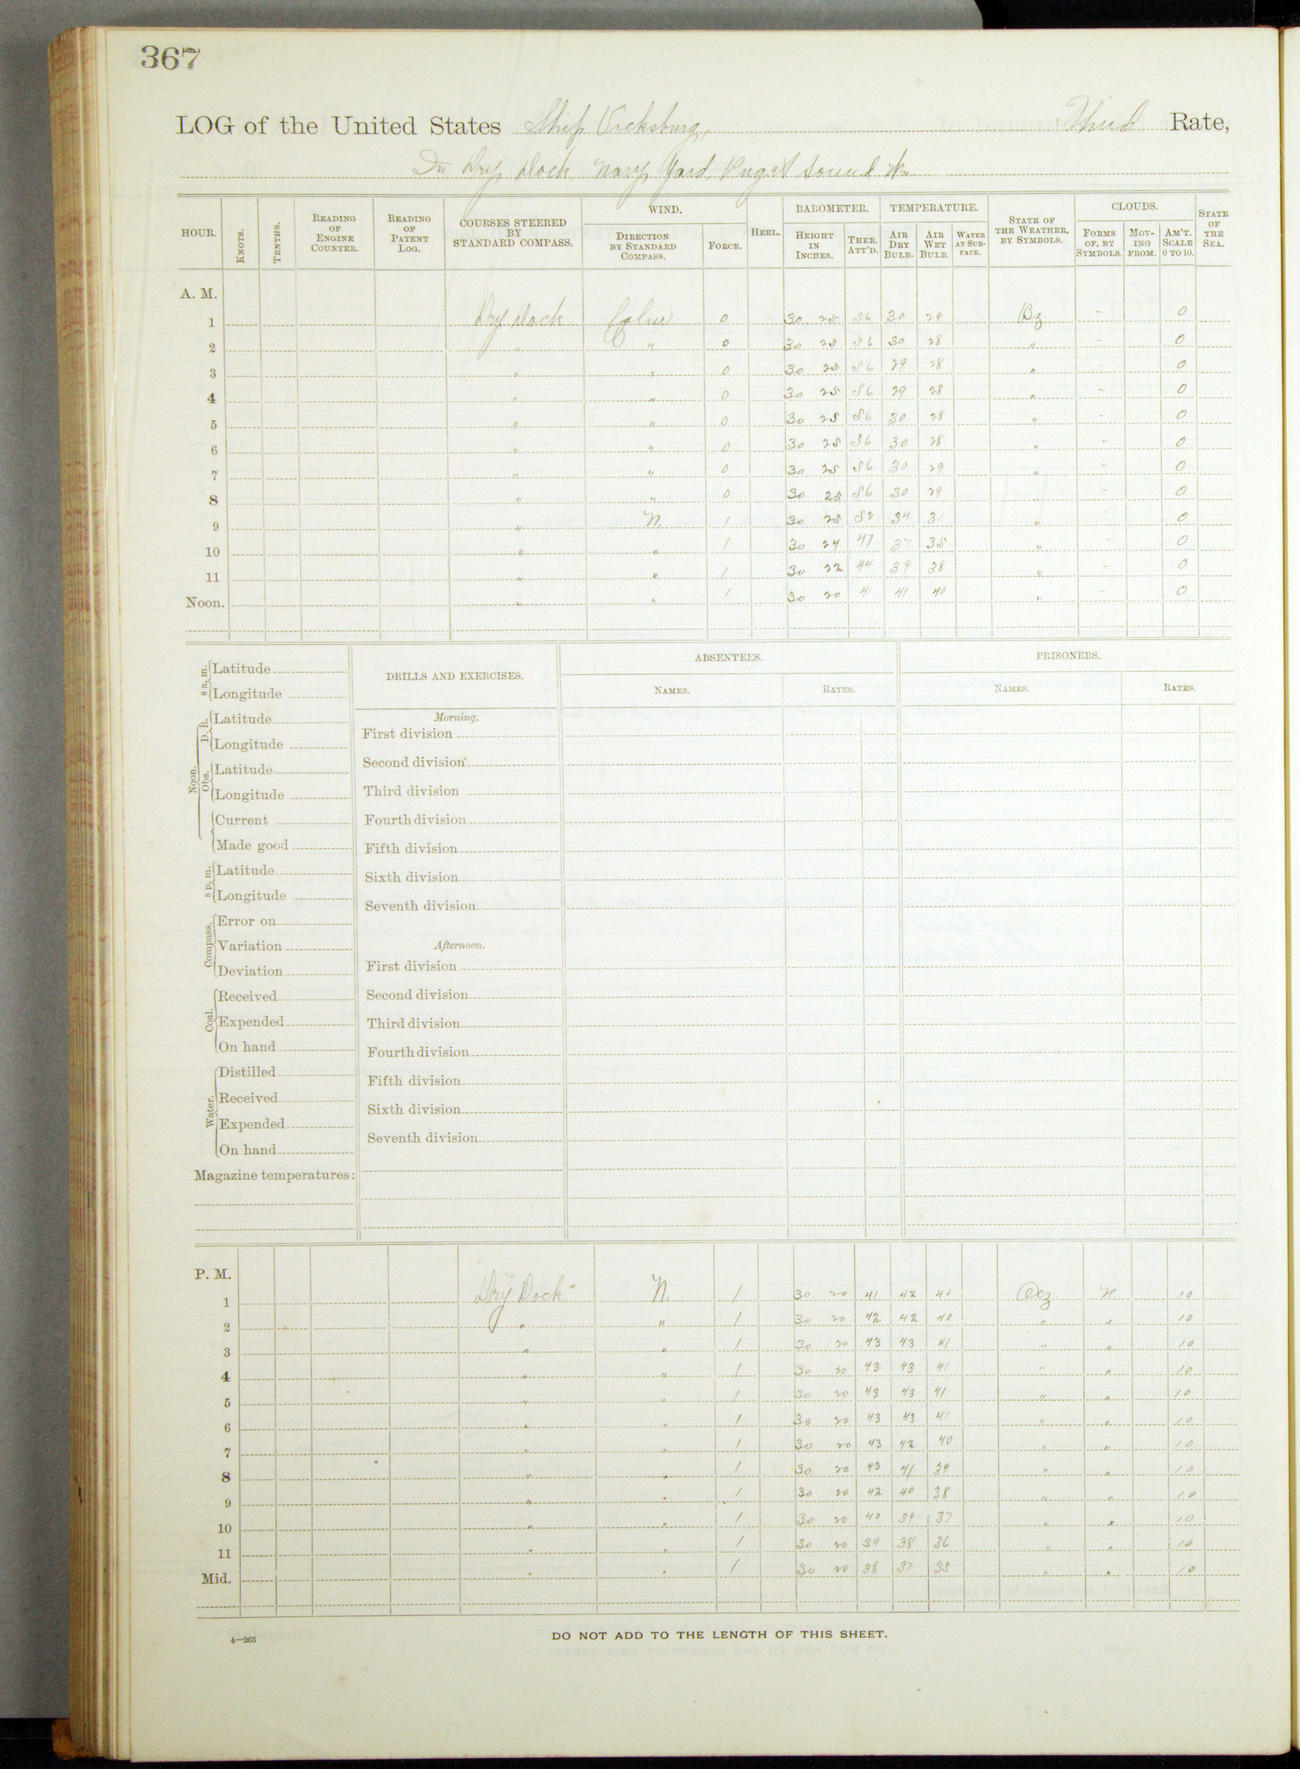 367
LOG of the United States Ship Vicksburg, Third Rate,
In Dry Dock Navy Yard, Puget Sound Wn.
HOUR. KNOTS. TENTHS. READING OF ENGINE COUNTER. READING OF PATENT LOG. COURSES STEERED BY STANDARD COMPASS. WIND. DIRECTION BY STANDARD COMPASS. FORCE. HEEL. BAROMETER. HEIGHT IN INCHES. THER. ATT'D. TEMPERATURE. AIR DRY BULB. AIR WET BULB. WATER AT SURFACE. STATE OF THE WEATHER, BY SYMBOLS. CLOUDS. FORMS OF, BY SYMBOLS. MOVING FROM. AM'T. SCALE 0 TO 10. STATE OF THE SEA.
A. M.
1 Dry Dock Calm 0 30 28 56 30 29 Bz - 0
2 " " 0 30 28 56 30 28 " - 0
3 " " 0 30 28 56 29 28 " - 0
4 " " 0 30 28 56 29 28 " - 0
5 " " 0 30 28 56 30 28 " - 0
6 " " 0 30 28 56 30 28 " - 0
7 " " 0 30 28 56 30 29 " - 0
8 " " 0 30 28 56 30 29 " - 0
9 " N. 1 30 28 52 34 31 " - 0
10 " " 1 30 24 47 37 35 " - 0
11 " " 1 30 22 44 39 38 " - 0
Noon. " " 1 30 20 41 41 40 " - 0
8 a. m. Latitude
Longitude
Noon. D. R. Latitude
Longitude
Obs. Latitude
Longitude
Current
Made good
8 p. m. Latitude
Longitude
Compass. Error on
Variation
Deviation
Coal. Received
Expended
On hand
Water. Distilled
Received
Expended
On hand
Magazine temperatures:
DRILLS AND EXERCISES.
Morning.
First division
Second division
Third division
Fourth division
Fifth division
Sixth division
Seventh division
Afternoon.
First division
Second division
Third division
Fourth division
Fifth division
Sixth division
Seventh division
ABSENTEES.
NAMES. RATES.
PRISONERS.
NAMES. RATES.
P. M.
1 Dry Dock N. 1 30 20 41 42 40 Ocz N 10
2 " " 1 30 20 42 42 40 " " 10
3 " " 1 30 20 43 43 41 " " 10
4 " " 1 30 20 43 43 41 " " 10
5 " " 1 30 20 43 43 41 " " 10
6 " " 1 30 20 43 43 41 " " 10
7 " " 1 30 20 43 42 40 " " 10
8 " " 1 30 20 43 41 39 " " 10
9 " " 1 30 20 42 40 38 " " 10
10 " " 1 30 20 40 39 37 " " 10
11 " " 1 30 20 39 38 36 " " 10
Mid. " " 1 30 20 38 37 35 " " 10
4—265
DO NOT ADD TO THE LENGTH OF THIS SHEET.